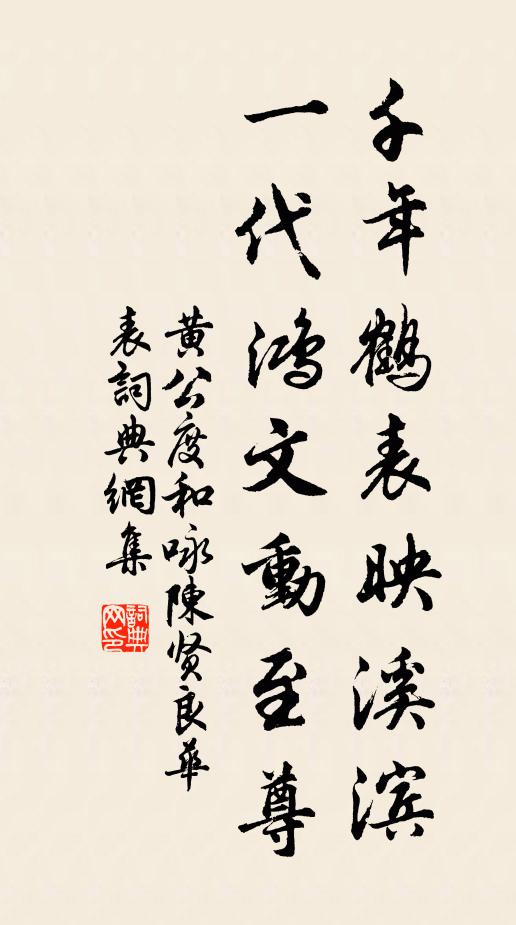 千年鶴表映溪滨
一代鴻文動至尊
黄公度和咏陳贤良華
表詞典網集
詞典网印